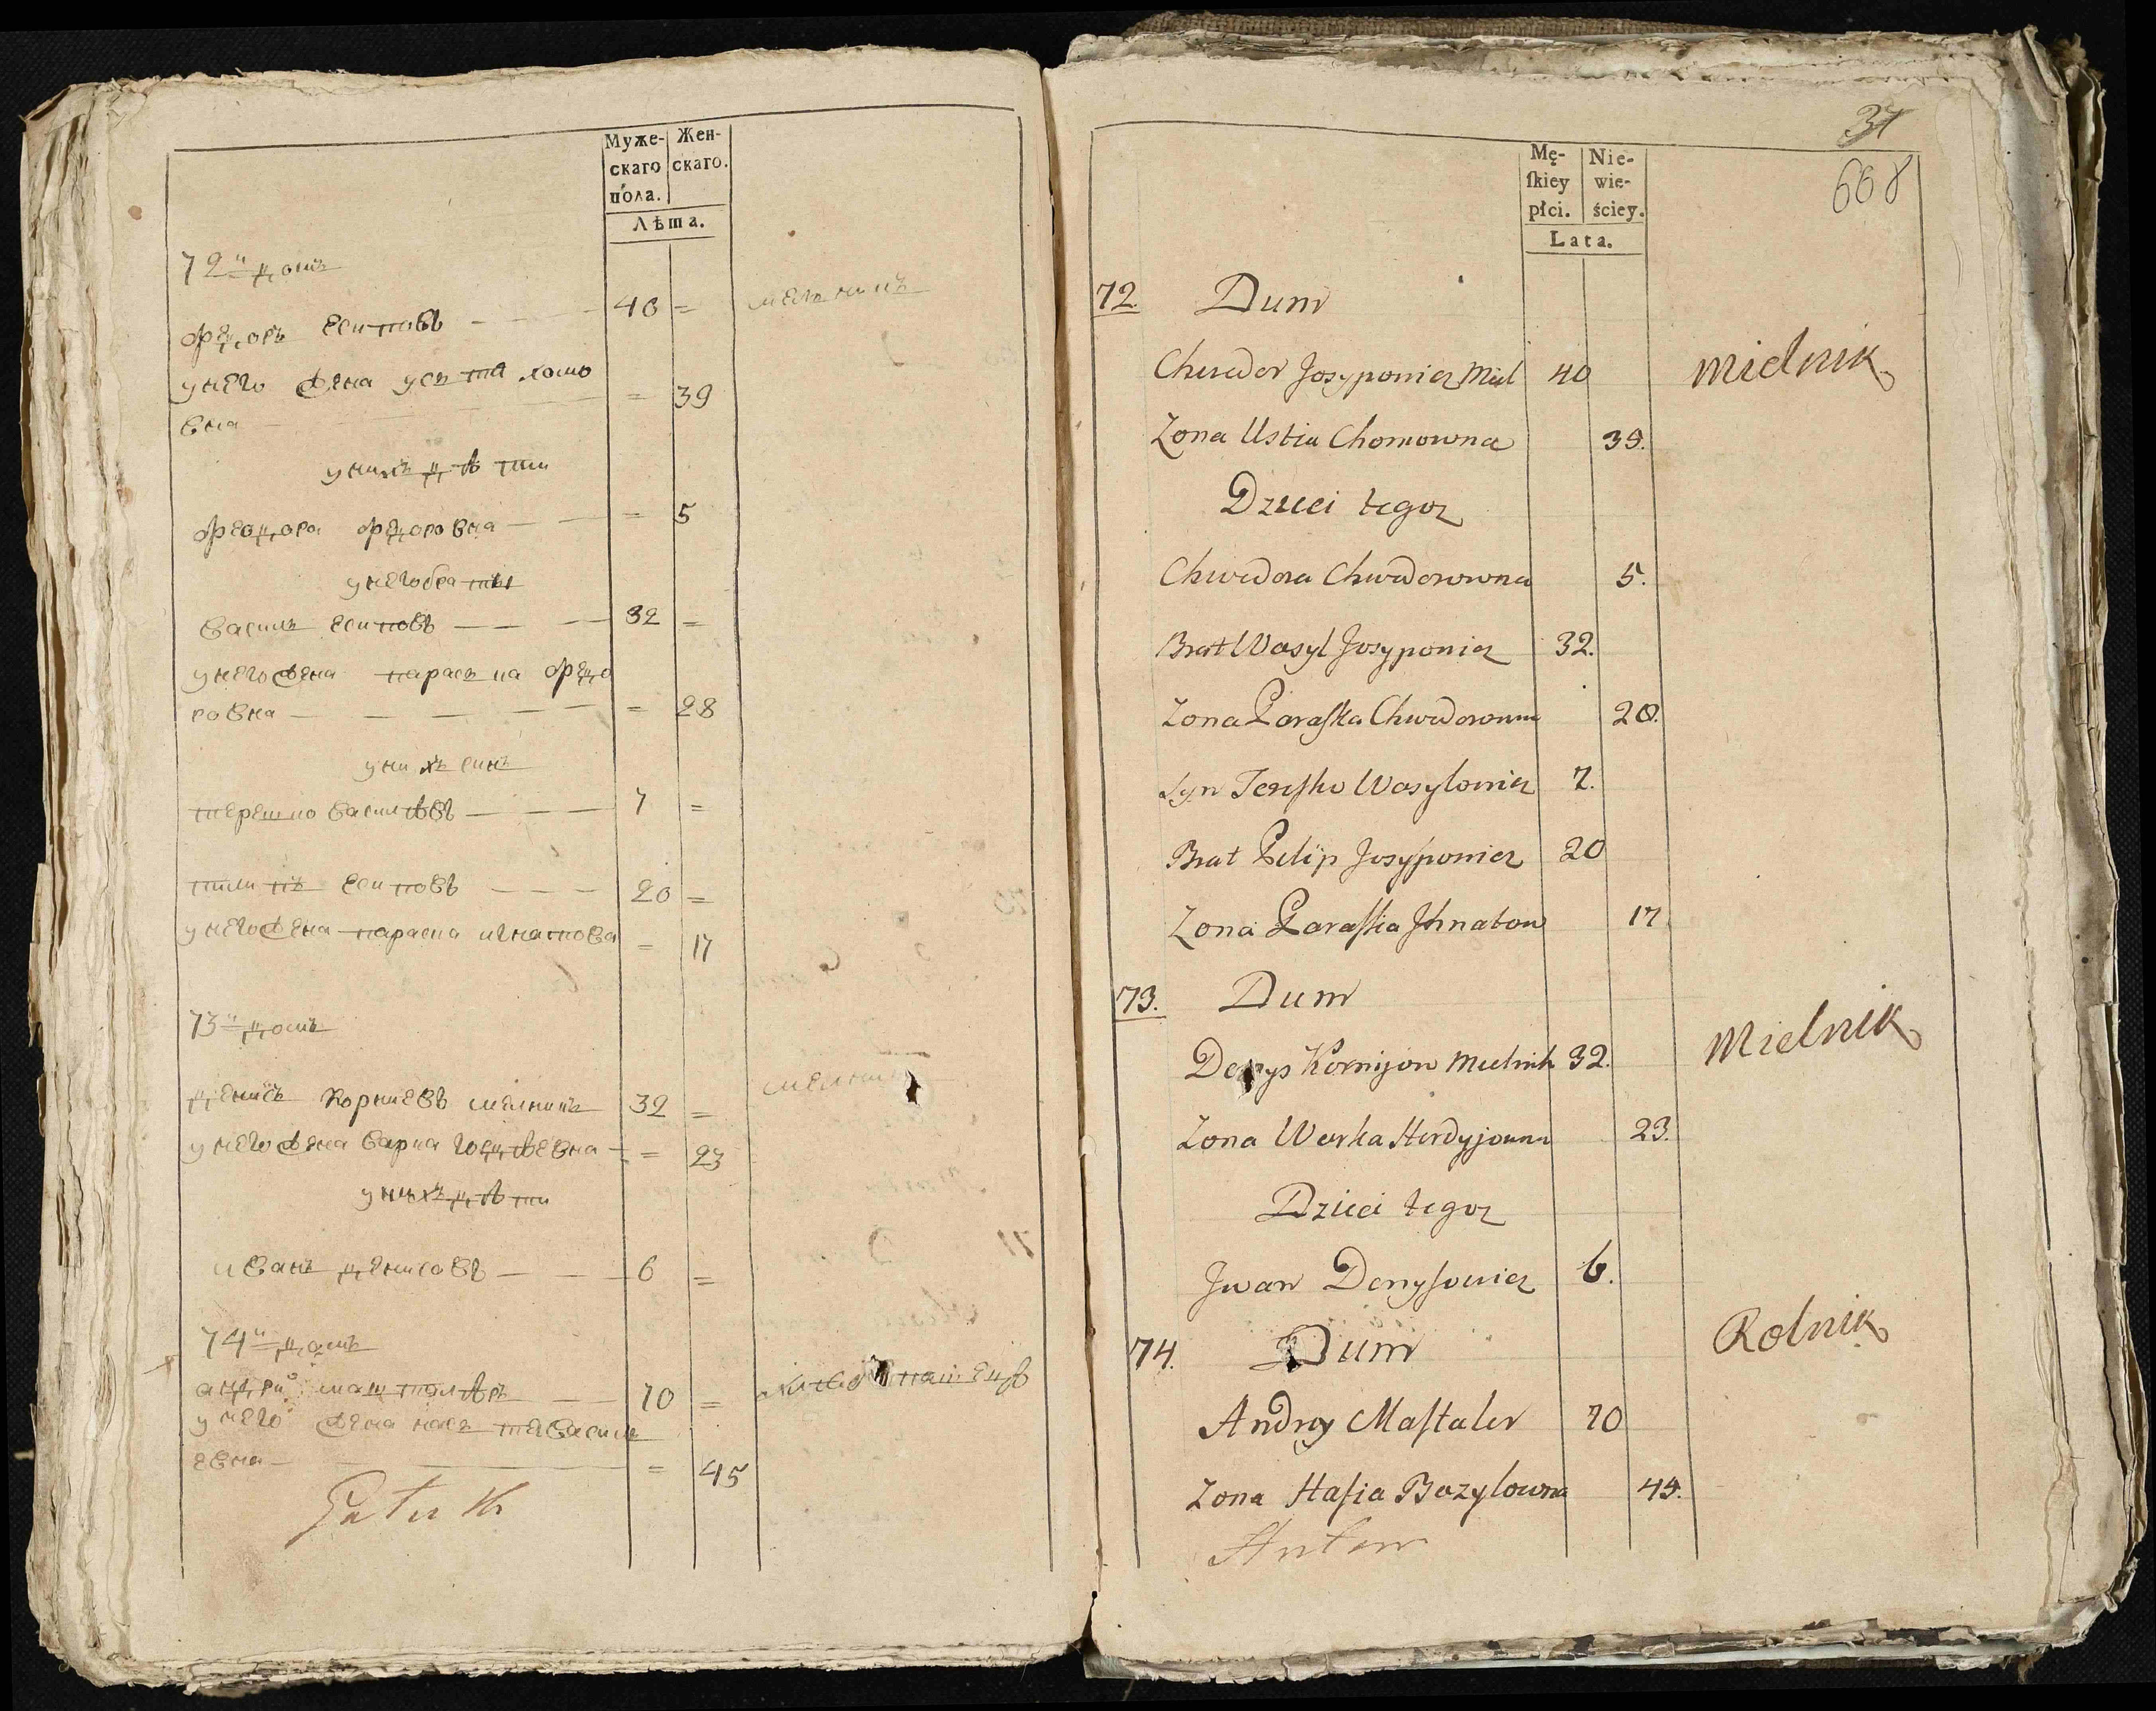 Муже-
скаго
пола.
Жен-
скаго.
Лѣта.
72й домъ
Федоръ Есиповъ 40 = мелникъ
у него жена устя хомо
вна = 39
у нихъ дѣти
Феодора Федоровна = 5
у него браты
Василь Есиповъ 32 =
у него жена Параска Федо
ровна = 28
у нихъ синъ
Терешко Василѣвъ 7 =
Пилипъ Есиповъ 20 =
у него жена Параска игнатова = 17
73й домъ
Денисъ Корниевъ мелникъ 32 = мелникъ
у него жена Варка Гордѣевна = 23
у нихъ дѣти
иванъ Денисовъ 6 =
74й домъ
андрий машталѣръ 70 =
у него жена настя Василь
евна = 45
31
668
Mę-
ſkiey
płci.
Nie-
wie-
ściey.
Lata.
72. Dum
Chwedor Josypowicz Miel 40 Mielnik
Zona Ustia Chomowna 39.
Dzieci tegoz
Chwedora Chwedorowna 5.
Brat Wasyl Josypowicz 32.
Zona Paraſka Chwedorowna 28.
Syn Tereſzko Wasylowicz 7.
Brat Pelip Josypowicz 20
Zona Paraſka Jhnatow 17
73. Dum
Denys Kornijow Mielnik 32. Mielnik
Zona Warka Hordyjowna 23.
Dzieci tegoz
Jwan Denyſowicz 6.
74. Dum Rolnik
Andrey Maſtaler 70
Zona Naſia Bazylowna 45.